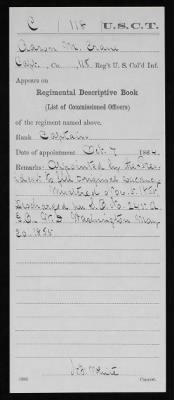 C | 118 | U.S.C.T.
Aaron M. Crane
Capt., Co. , 118 Reg't U. S. Col'd Inf.
Appears on
Regimental Descriptive Book
(List of Commissioned Officers)
of the regiment named above.
Rank Captain
Date of appointment Oct. 7, 1864.
Remarks: Appointed by the Pres-
ident to fill original vacancy.
Mustered
Discharged per S.O. No.
Washington May
1865
White
Copyist.